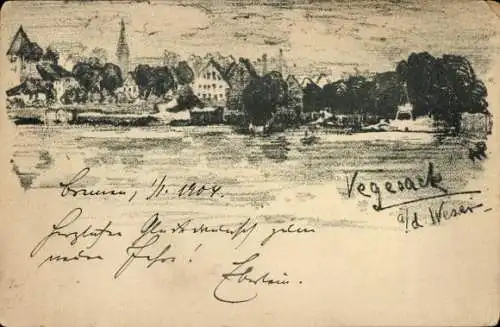 Vegesack
a/d Weser
Bremen, 1/1. 1904.
Herzlichen Glückwunsch zum
neuen Jahre!
Eberlein.